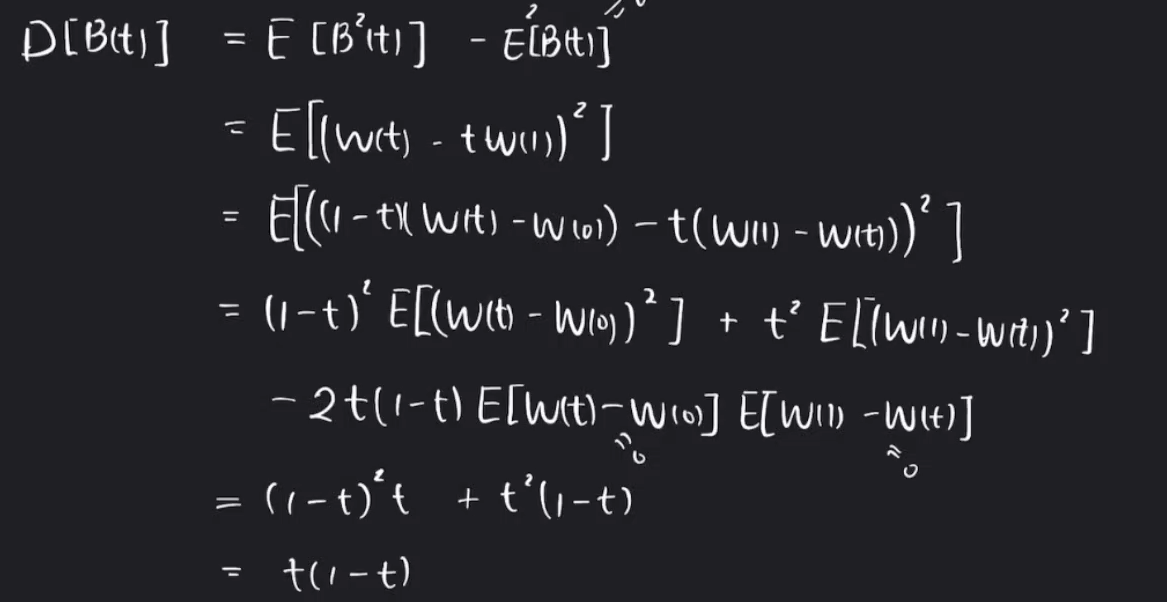 D[B(t)] = E[B²(t)] - E²[B(t)] = 0
= E[(W(t) - tW(1))²]
= E[((1-t)(W(t) - W(0)) - t(W(1) - W(t)))²]
= (1-t)² E[(W(t) - W(0))²] + t² E[(W(1) - W(t))²]
- 2t(1-t) E[W(t) - W(0)] E[W(1) - W(t)]
= 0 = 0
= (1-t)² t + t²(1-t)
= t(1-t)